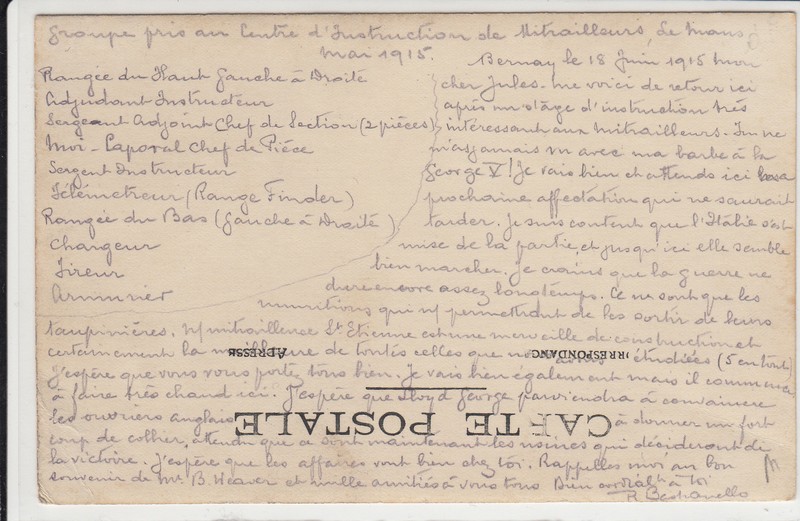 Groupe pris au Centre d'Instruction de Mitrailleurs, Le Mans
Mai 1915.
Rangée du Haut Gauche à Droite
Adjudant Instructeur
Sergeant Adjoint Chef de Section (2 pièces)
Moi - Caporal Chef de Pièce
Sergent Instructeur
Télémetreur (Range Finder)
Rangée du Bas (Gauche à Droite)
Chargeur
Tireur
Armurier
Bernay le 18 Juin 1915 Mon
cher Jules - me voici de retour ici
après un stage d'instruction très
intéressant aux mitrailleurs - Tu ne
m'as jamais vu avec ma barbe à la
George V! Je vais bien et attends ici
prochaine affectation qui ne saurait
tarder. Je suis content que l'Italie s'est
mise de la partie, et jusqu'ici elle semble
bien marcher. Je crains que la guerre ne
dure encore assez longtemps. Ce ne sont que les
munitions qui n/ permettront de les sortir de leurs
taupinières. N/ mitrailleuse St Etienne est une merveille de construction et
certainement la meilleure de toutes celles que étudiées (5 en tout)
J'espère que vous vous portez tous bien. Je vais bien également mais il commence
à faire très chaud ici. J'espère que Lloyd George parviendra à convaincre
les ouvriers anglais à donner un fort
coup de collier, attendu que ce sont maintenant les usines qui décideront de
la victoire. J'espère que les affaires vont bien chez toi. Rappelles moi au bon
souvenir de Mr. B. Weaver et mille amitiés à vous tous Bien cordialt à toi
ADRESSE
CORRESPONDANCE
CARTE POSTALE